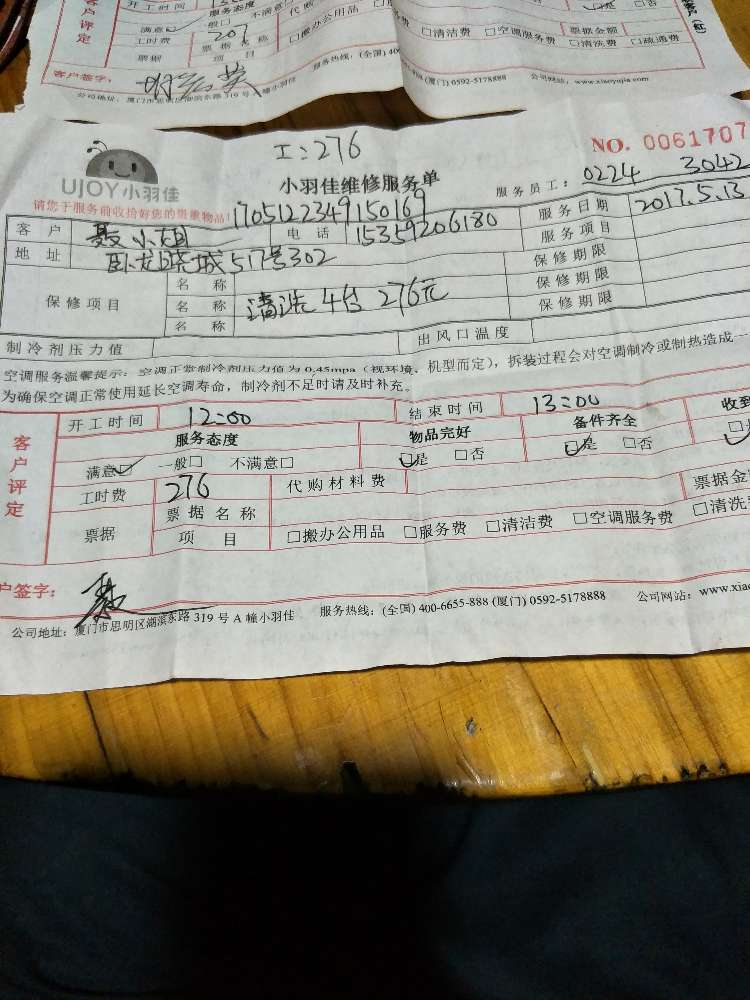 开工时间
服务态度
一般□ 不满意□ 代购
满意
工时费 207
票据名称
票据 项目 □搬办公用品 □清洁费 □空调服务费 □清洗费 □疏通费
票据金额
是 □否
客户签字:
服务热线:(全国) 400 (厦门) 0592-5178888 公司网站:www.xiaoyujia.com
公司地址:厦门市思明区湖滨东路 319 号 A 幢小羽佳
工:276
NO. 0061707
UJOY小羽佳
小羽佳维修服务单
服务员工: 0224 3042
请您于服务前收拾好您的贵重物品!
1705122349150169
客户 聂小姐 电话 15359206180 服务日期 2017.5.13
地址 卧龙晓城517号302 服务项目
保修项目
名称 保修期限
名称 清洗4台 276元 保修期限
名称 保修期限
制冷剂压力值 出风口温度
空调服务温馨提示:空调正常制冷剂压力值为 0.45mpa(视环境、机型而定),拆装过程会对空调制冷或制热造成一
为确保空调正常使用延长空调寿命,制冷剂不足时请及时补充。
客户评定
开工时间 12:00 结束时间 13:00
服务态度 物品完好 备件齐全 收到
满意□ 一般□ 不满意□ □是 □否 □是 □否
工时费 276 代购材料费
票据 票据名称 票据金
项目 □搬办公用品 □服务费 □清洁费 □空调服务费 □清洗
户签字: 聂
公司地址:厦门市思明区湖滨东路 319 号 A 幢小羽佳 服务热线:(全国) 400-6655-888 (厦门) 0592-5178888 公司网站:www.xia